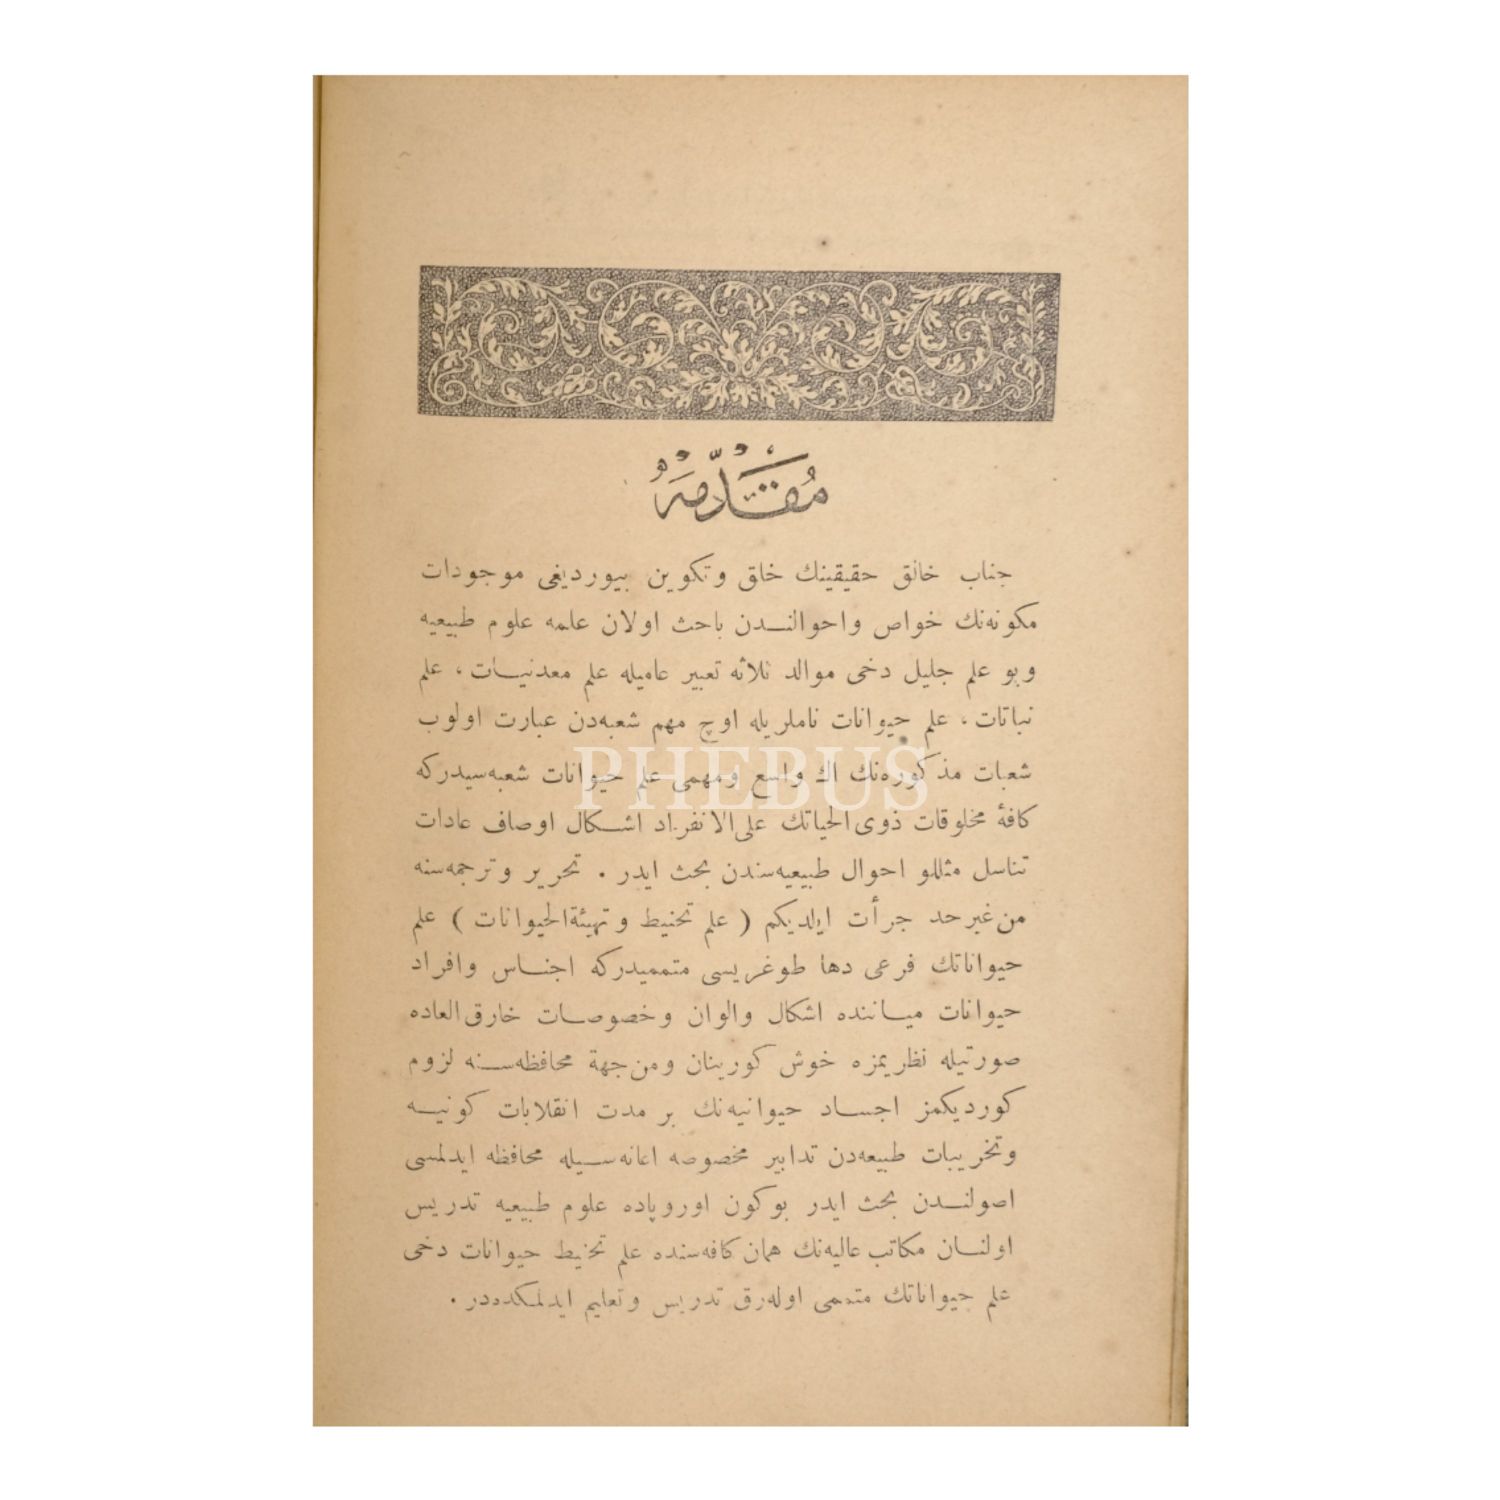 مقدمه
جناب خالق حقيقينك خلق وتكوين بيورديغى موجودات
مكونه‌نك خواص واحوالندن باحث اولان علمه علوم طبيعيه
وبو علم جليل دخى موالد ثلاثه تعبير عاميله علم معدنيات ، علم
نباتات ، علم حيوانات ناملريله اوچ مهم شعبه‌دن عبارت اولوب
شعبات مذكوره‌نك اك واسع ومهمى علم حيوانات شعبه‌سيدركه
PHEBUS
كافهٔ مخلوقات ذوى‌الحياتك على‌الانفراد اشكال اوصاف عادات
تناسل مثللو احوال طبيعيه‌سندن بحث ايدر . تحرير وترجمه‌سنه
من‌غيرحد جرأت ايلديكم ( علم تحنيط وتهيئة‌الحيوانات ) علم
حيواناتك فرعى دها طوغريسى متمميدركه اجناس وافراد
حيوانات مياننده اشكال والوان وخصوصات خارق‌العاده
صورتيله نظريمزه خوش كورينان ومن‌جهة محافظه‌سنه لزوم
كورديكمز اجساد حيوانيه‌نك بر مدت انقلابات كونيه
وتخريبات طبيعه‌دن تدابير مخصوصه اعانه‌سيله محافظه ايدلمسى
اصولندن بحث ايدر بوكون اوروپاده علوم طبيعيه تدريس
اولنان مكاتب عاليه‌نك همان كافه‌سنده علم تحنيط حيوانات دخى
علم حيواناتك متممى اوله‌رق تدريس وتعليم ايدلمكده‌در .